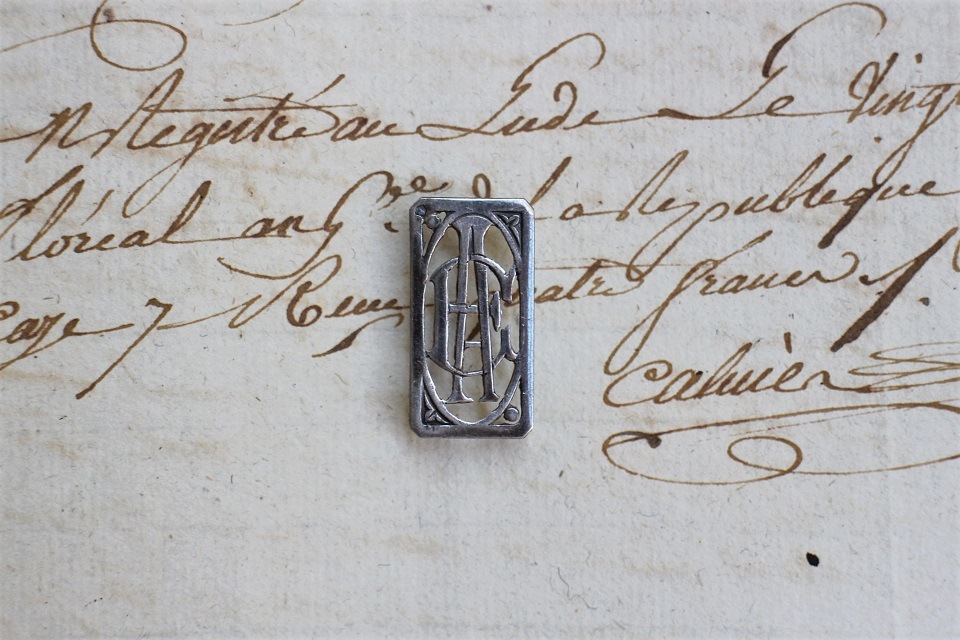 Registré au Lude Le Vingt
floréal an 6.me de La République
Caze 7 Reçu quatre francs
Cahuër